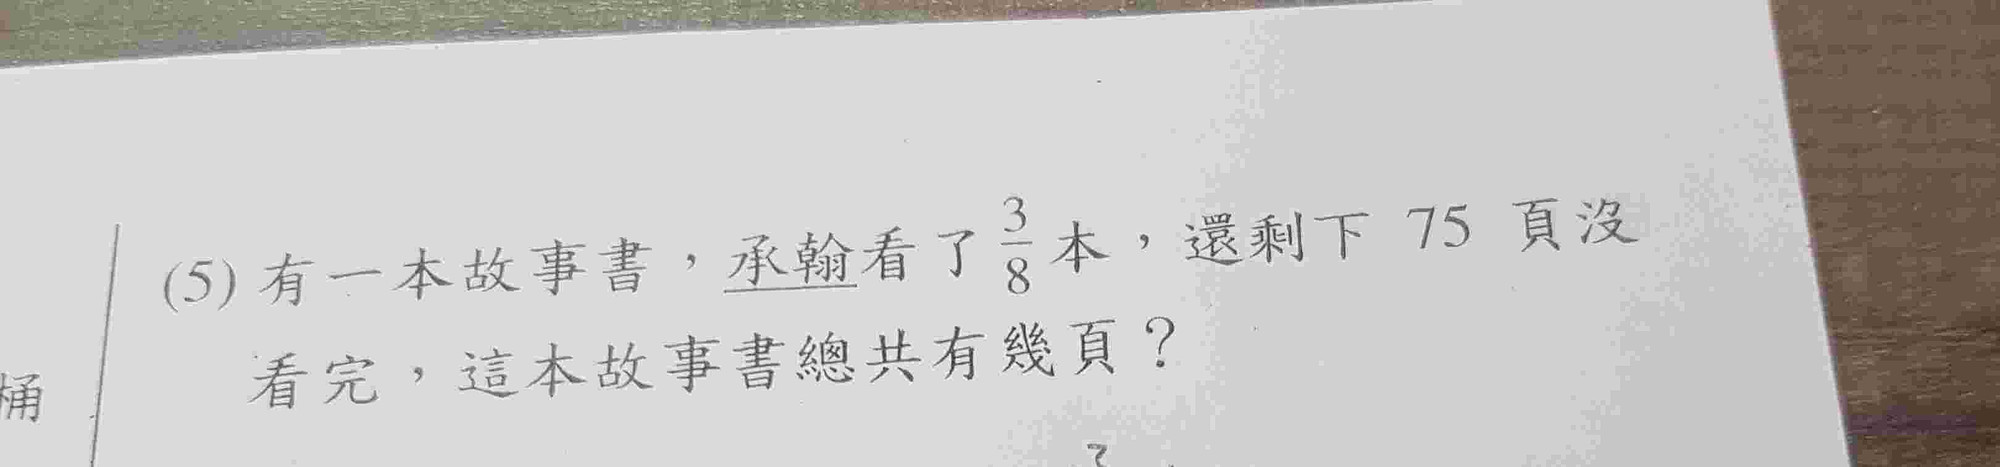 (5) 有一本故事書，承翰看了 3/8 本，還剩下 75 頁沒
看完，這本故事書總共有幾頁？
桶